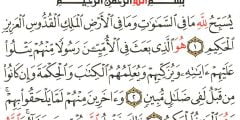 بِسْمِ اللَّهِ الرَّحْمَٰنِ الرَّحِيمِ
يُسَبِّحُ لِلَّهِ مَا فِي السَّمَٰوَٰتِ وَمَا فِي الْأَرْضِ الْمَلِكِ الْقُدُّوسِ الْعَزِيزِ
الْحَكِيمِ ١ هُوَ الَّذِي بَعَثَ فِي الْأُمِّيِّـۧنَ رَسُولًا مِّنْهُمْ يَتْلُوا۟
عَلَيْهِمْ ءَايَٰتِهِۦ وَيُزَكِّيهِمْ وَيُعَلِّمُهُمُ الْكِتَٰبَ وَالْحِكْمَةَ وَإِن كَانُوا۟
مِن قَبْلُ لَفِي ضَلَٰلٍ مُّبِينٍ ٢ وَءَاخَرِينَ مِنْهُمْ لَمَّا يَلْحَقُوا۟ بِهِمْ